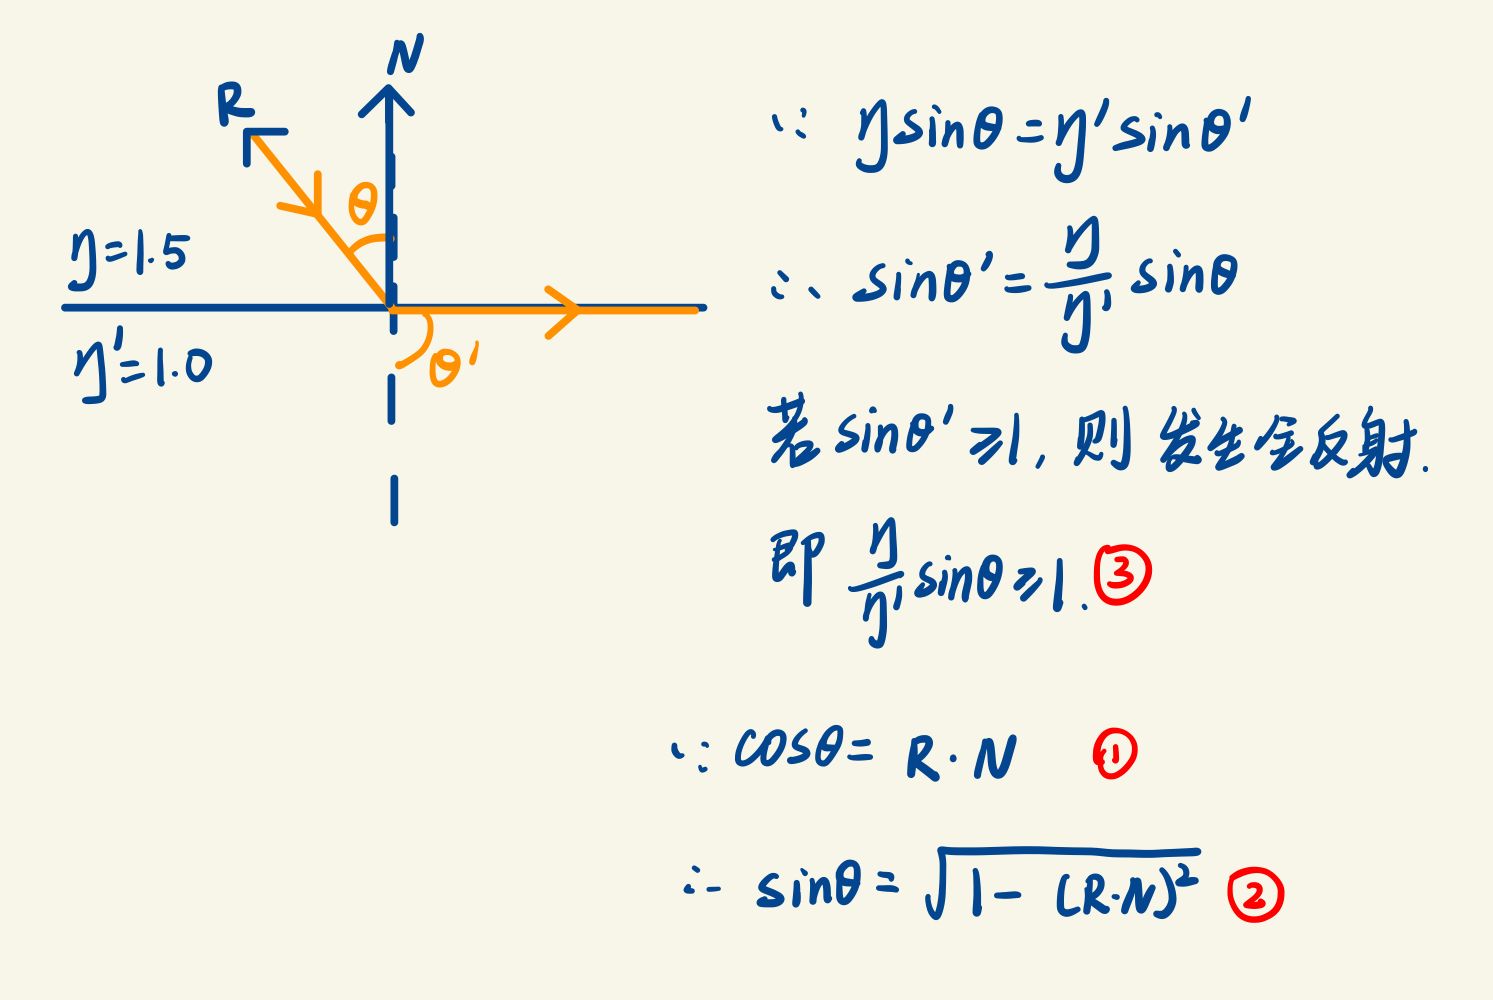 N
R
θ
η=1.5
η'=1.0
θ'
∵ ηsinθ=η'sinθ'
∴ sinθ'= η/η' sinθ
若 sinθ' ⩾1, 则 发生全反射.
即 η/η' sinθ ⩾1. ③
∵ cosθ= R·N ①
∴ sinθ= √(1-(R·N)²) ②